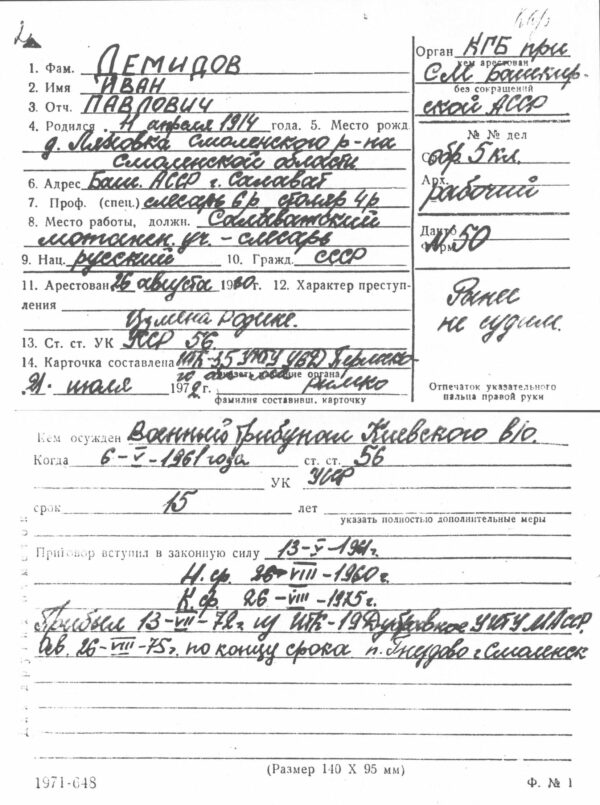 2
1. Фам. ДЕМИДОВ
2. Имя ИВАН
3. Отч. ПАВЛОВИЧ
4. Родился 11 апреля 1914 года. 5. Место рожд.
д. Ляховка Смоленского р-на
Смоленской области
6. Адрес Баш. АССР г. Салават
7. Проф. (спец.) слесарь 6 р. столяр 4 р
8. Место работы, должн. Салаватский
уч. - слесарь
9. Нац. русский 10. Гражд. СССР
11. Арестован 26 августа 1960г. 12. Характер преступ-
ления
Измена Родине.
13. Ст. ст. УК УССР 56.
14. Карточка составлена ИТК-35 УИТУ УВД Пермско-
го
21. июля 1972г.
фамилия составивш. карточку
Орган КГБ при
кем арестован
СМ Башкир-
без сокращений
ской АССР
№ № дел
обр 5 кл.
Арх.
рабочий
№ 50
Ранее
не судим.
Отпечаток указательного
пальца правой руки
Кем осужден Военный Трибунал Киевского в/о.
Когда 6-V-1961 года ст. ст. 56
УК УССР
срок 15 лет
указать полностью дополнительные меры
Приговор вступил в законную силу 13-V-1961г.
Н. ср. 26-VIII-1960г.
К. ср. 26-VIII-1975г.
Прибыл 13-VII-72г из ИТК-19 Дубравное УИТУ МАССР.
Осв. 26-VIII-75г. по концу срока п. Гнездово г Смоленск
(Размер 140 X 95 мм)
1971-648
Ф. № 1